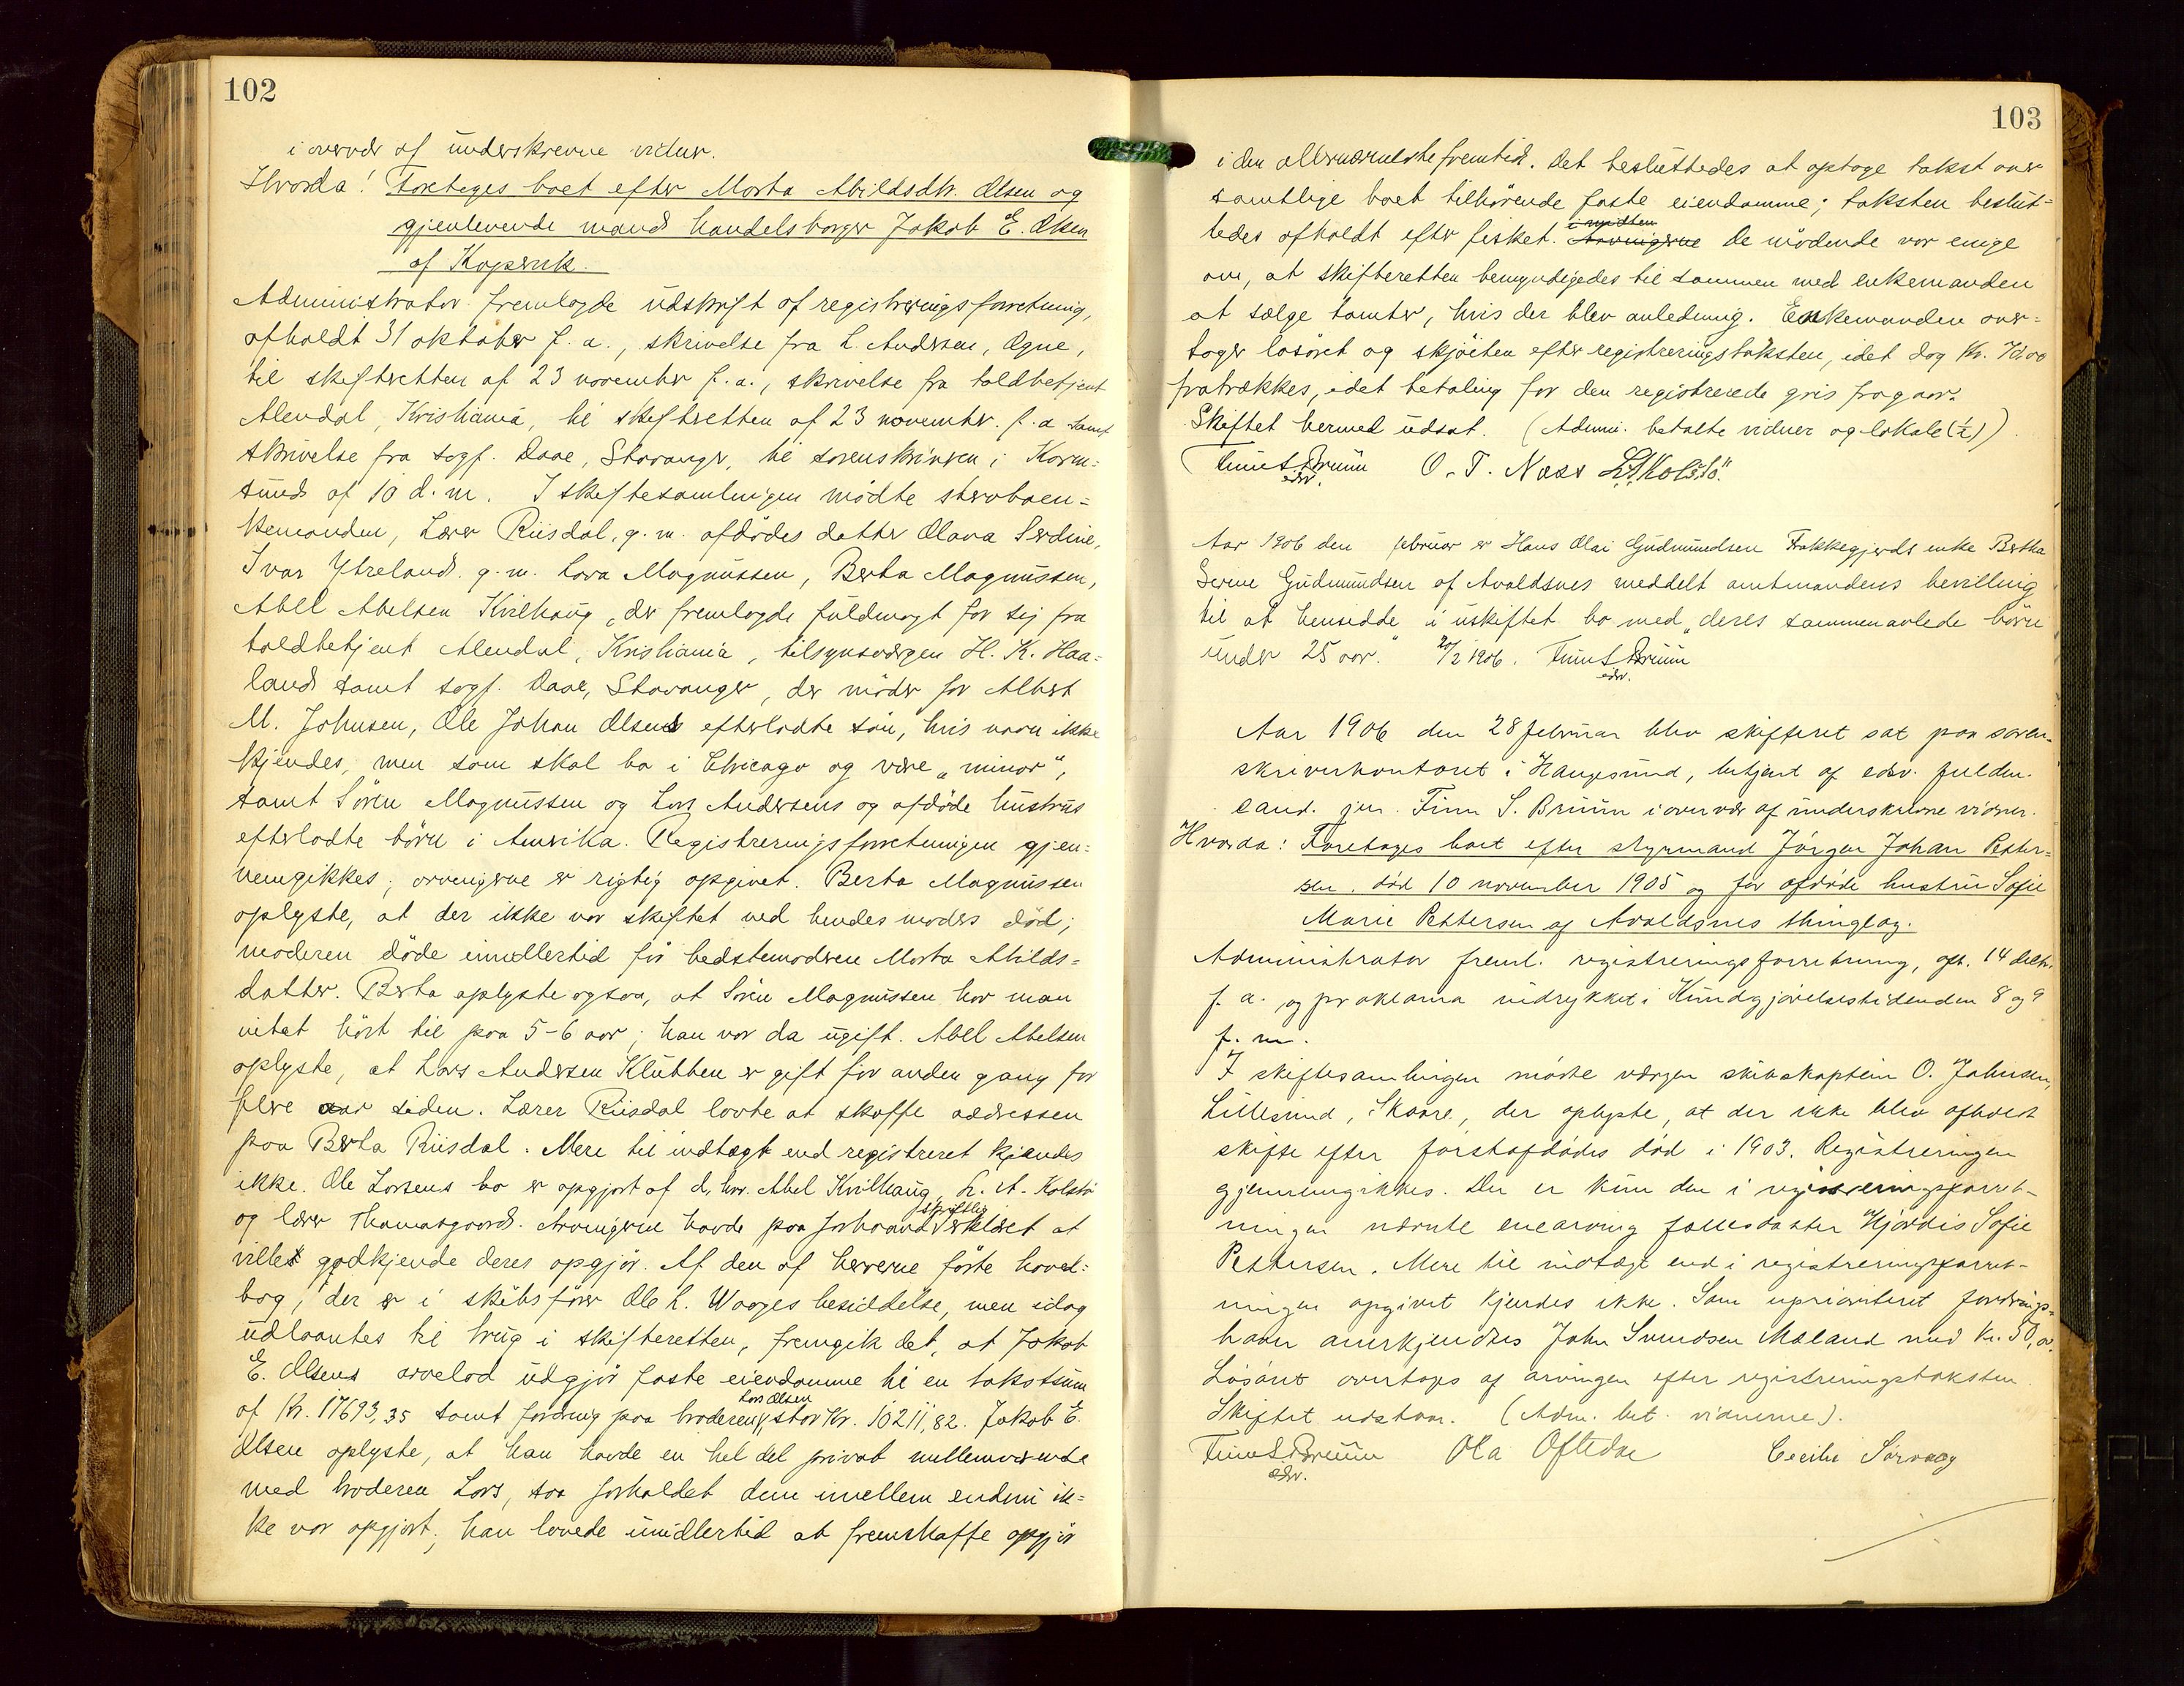 102
i overvær af underskrevne vidner.
Hvorda! Foretoges boet efter Marta Abildsdtr. Olsen og
gjenlevende mand handelsborger Jakob E. Olsen
af Kopervik.
Administrator fremlagde udskrift af registreringsforretning,
afholdt 31 oktober f. a., skrivelse fra L. Andersen, Ogne,
til skifteretten af 23 november f. a., skrivelse fra toldbetjent
Alendal, Kristiania, til skifteretten af 23 november. f. a samt
skrivelse fra sagf. Daae, Stavanger, til sorenskriveren i Karm=
sund af 10 d. m. I skiftesamlingen mødte stervboen=
kemanden, Lærer Riisdal, g. m. afdødes datter Olava Serdine,
Ivar Ytreland. g. m. Lava Magnussen, Berta Magnussen,
Abel Abelsen Kvilhaug, der fremlagde fuldmagt for sig fra
toldbetjent Alendal, Kristiania, tilsynsværgen H. K. Haa=
land samt sagf. Daae, Stavanger, der møder for Albert
M. Johnsen, Ole Johan Olsens efterladte søn, hvis navn ikke
kjendes, men som skal bo i Chicago og være „minor",
samt Sören Magnussen og Lars Andersens og afdöde hustrus
efterladte börn i Amerika. Registreringsforretningen gjen=
nemgikkes; arvingerne er rigtig opgivet. Berta Magnussen
oplyste, at der ikke var skiftet ved hendes moders död;
moderen döde imidlertid før bedstemoderen Marta Abilds=
datter. Berta oplyste ogsaa, at Sören Magnussen har man
intet hört til paa 5-6 aar; han var da ugift. Abel Abelsen
oplyste, at Lars Andersen Klubben er gift for anden gang for
flere aar siden. Lærer Riisdal lovte at skaffe adressen
paa Berta Riisdal. Mere til indtægt end registreret kjendes
ikke. Ole Larsens bo er opgjort af d. hrr. Abel Kvilhaug, L. A. Kolstø
og lærer Thomasgaard. Arvingerne havde paa forhaand skriftlig erklæret at
ville godkjende deres opgjör. Af den af herrerne förte hoved=
bog, der er i skibsfører Ole L. Waages besiddelse, men idag
udlaantes til brug i skifteretten, fremgik det, at Jakob
E. Olsens arvelod udgjör faste eiendomme til en takstsum
af Kr. 17693,35 samt fordring paa broderen Lars Olsen, stor Kr. 10211,82. Jakob E.
Olsen oplyste, at han havde en hel del privat mellemværende
med broderen Lars, saa forholdet dem imellem endnu ik=
ke var opgjort; han lovede imidlertid at fremskaffe opgjör
103
i den allernærmeste fremtid. Det besluttedes at optage takst over
samtlige boet tilhørende faste eiendomme; taksten beslut=
tedes afholdt efter fisket. Arvingerne De mödende var enige
om, at skifteretten bemyndigedes til sammen med enkemanden
at sælge tomter, hvis der blev anledning. Enkemanden over=
tager løsöret og skjöiten efter registreringstaksten, idet dog Kr.
fratrækkes, idet betaling for den registrerede gris fragaar.
Skiftet hermed udsat. (Admi. betalte vidner og lokale (½))
Finn S Bruun O. T. Næss L. A. Kolstø
edsv.
Aar 1906 den februar er Hans Olai Gudmundsen Frakkegjerds enke Bertha
Serine Gudmundsen af Avaldsnes meddelt amtmandens bevilling
til at hensidde i uskiftet bo med „deres sammenavlede börn
under 25 aar." 20/2 1906. Finn S Bruun
edsv.
Aar 1906 den 28 februar blev skifteret sat paa soren-
skriverkontoret i Haugesund, betjent af edsv. fuldm.
cand. jur. Finn S. Bruun i overvær af underskrevne vidner.
Hvorda: Foretoges boet efter styrmand Jörgen Johan Petter=
sen, död 10 november 1905 og før afdøde hustru Sofie
Marie Pettersen af Avaldsnes thinglag.
Administrator freml. registreringsforretning, afh. 14 decbr.
f. a. og proklama indrykket i Kundgjörelsestidenden 8 og 9
f. m.
I skiftesamlingen mødte værgen skibskaptein O. Johnsen,
Lillesund, Skaare, der oplyste, at der ikke blev afholdt
skifte efter førstafdødes död i 1903. Registreringen
gjennemgikkes. Der er kun den i registreringsforret-
ningen nævnte enearving fællesdatter Hjördis Sofie
Pettersen. Mere til indtægt end i registreringsforret-
ningen opgivet kjendes ikke. Som uprioriteret fordrings=
haver anerkjendtes John Svendsen Mæland med Kr. 50,00.
Lösöret overtoges af arvingen efter registreringstaksten.
Skiftet udstaar. (Adm. bet. vidnerne).
Finn S Bruun Ola Oftedal Cecilie Sørvaag
edsv.